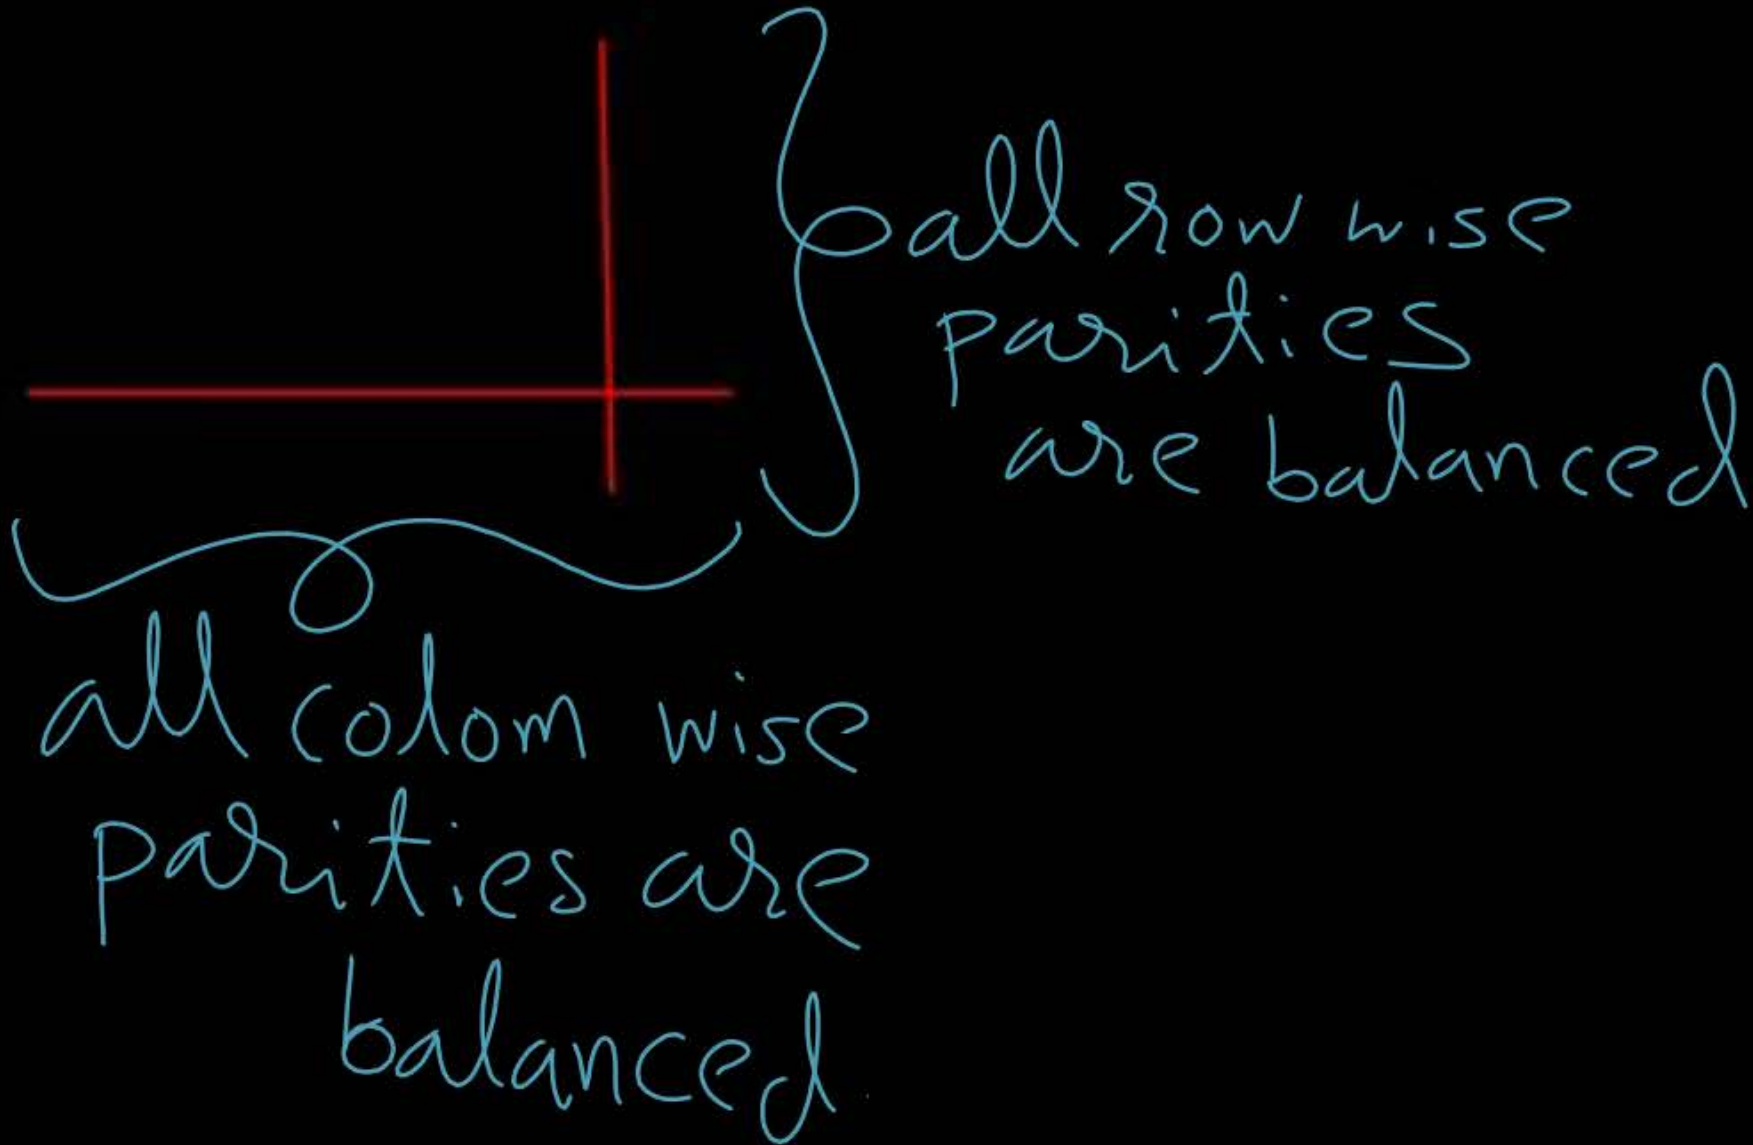 all row wise
parities
are balanced
all colom wise
parities are
balanced.